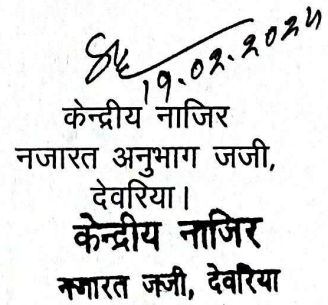 19.02.2024
केन्द्रीय नाजिर
नजारत अनुभाग जजी,
देवरिया।
केन्द्रीय नाजिर
नजारत जजी, देवरिया